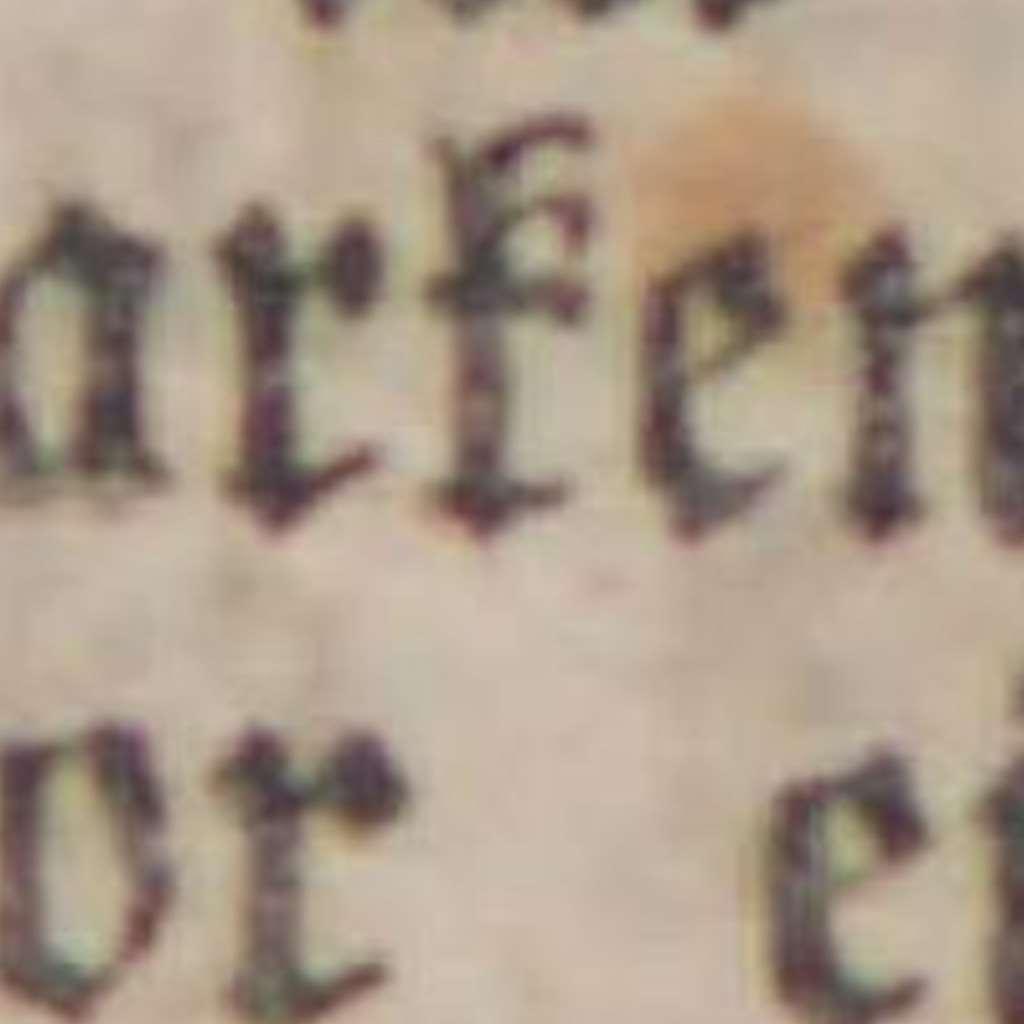 arken
or e